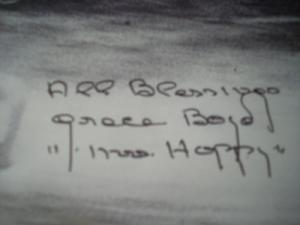 All Blessings
Grace Boyd
"Mrs. Hoppy"